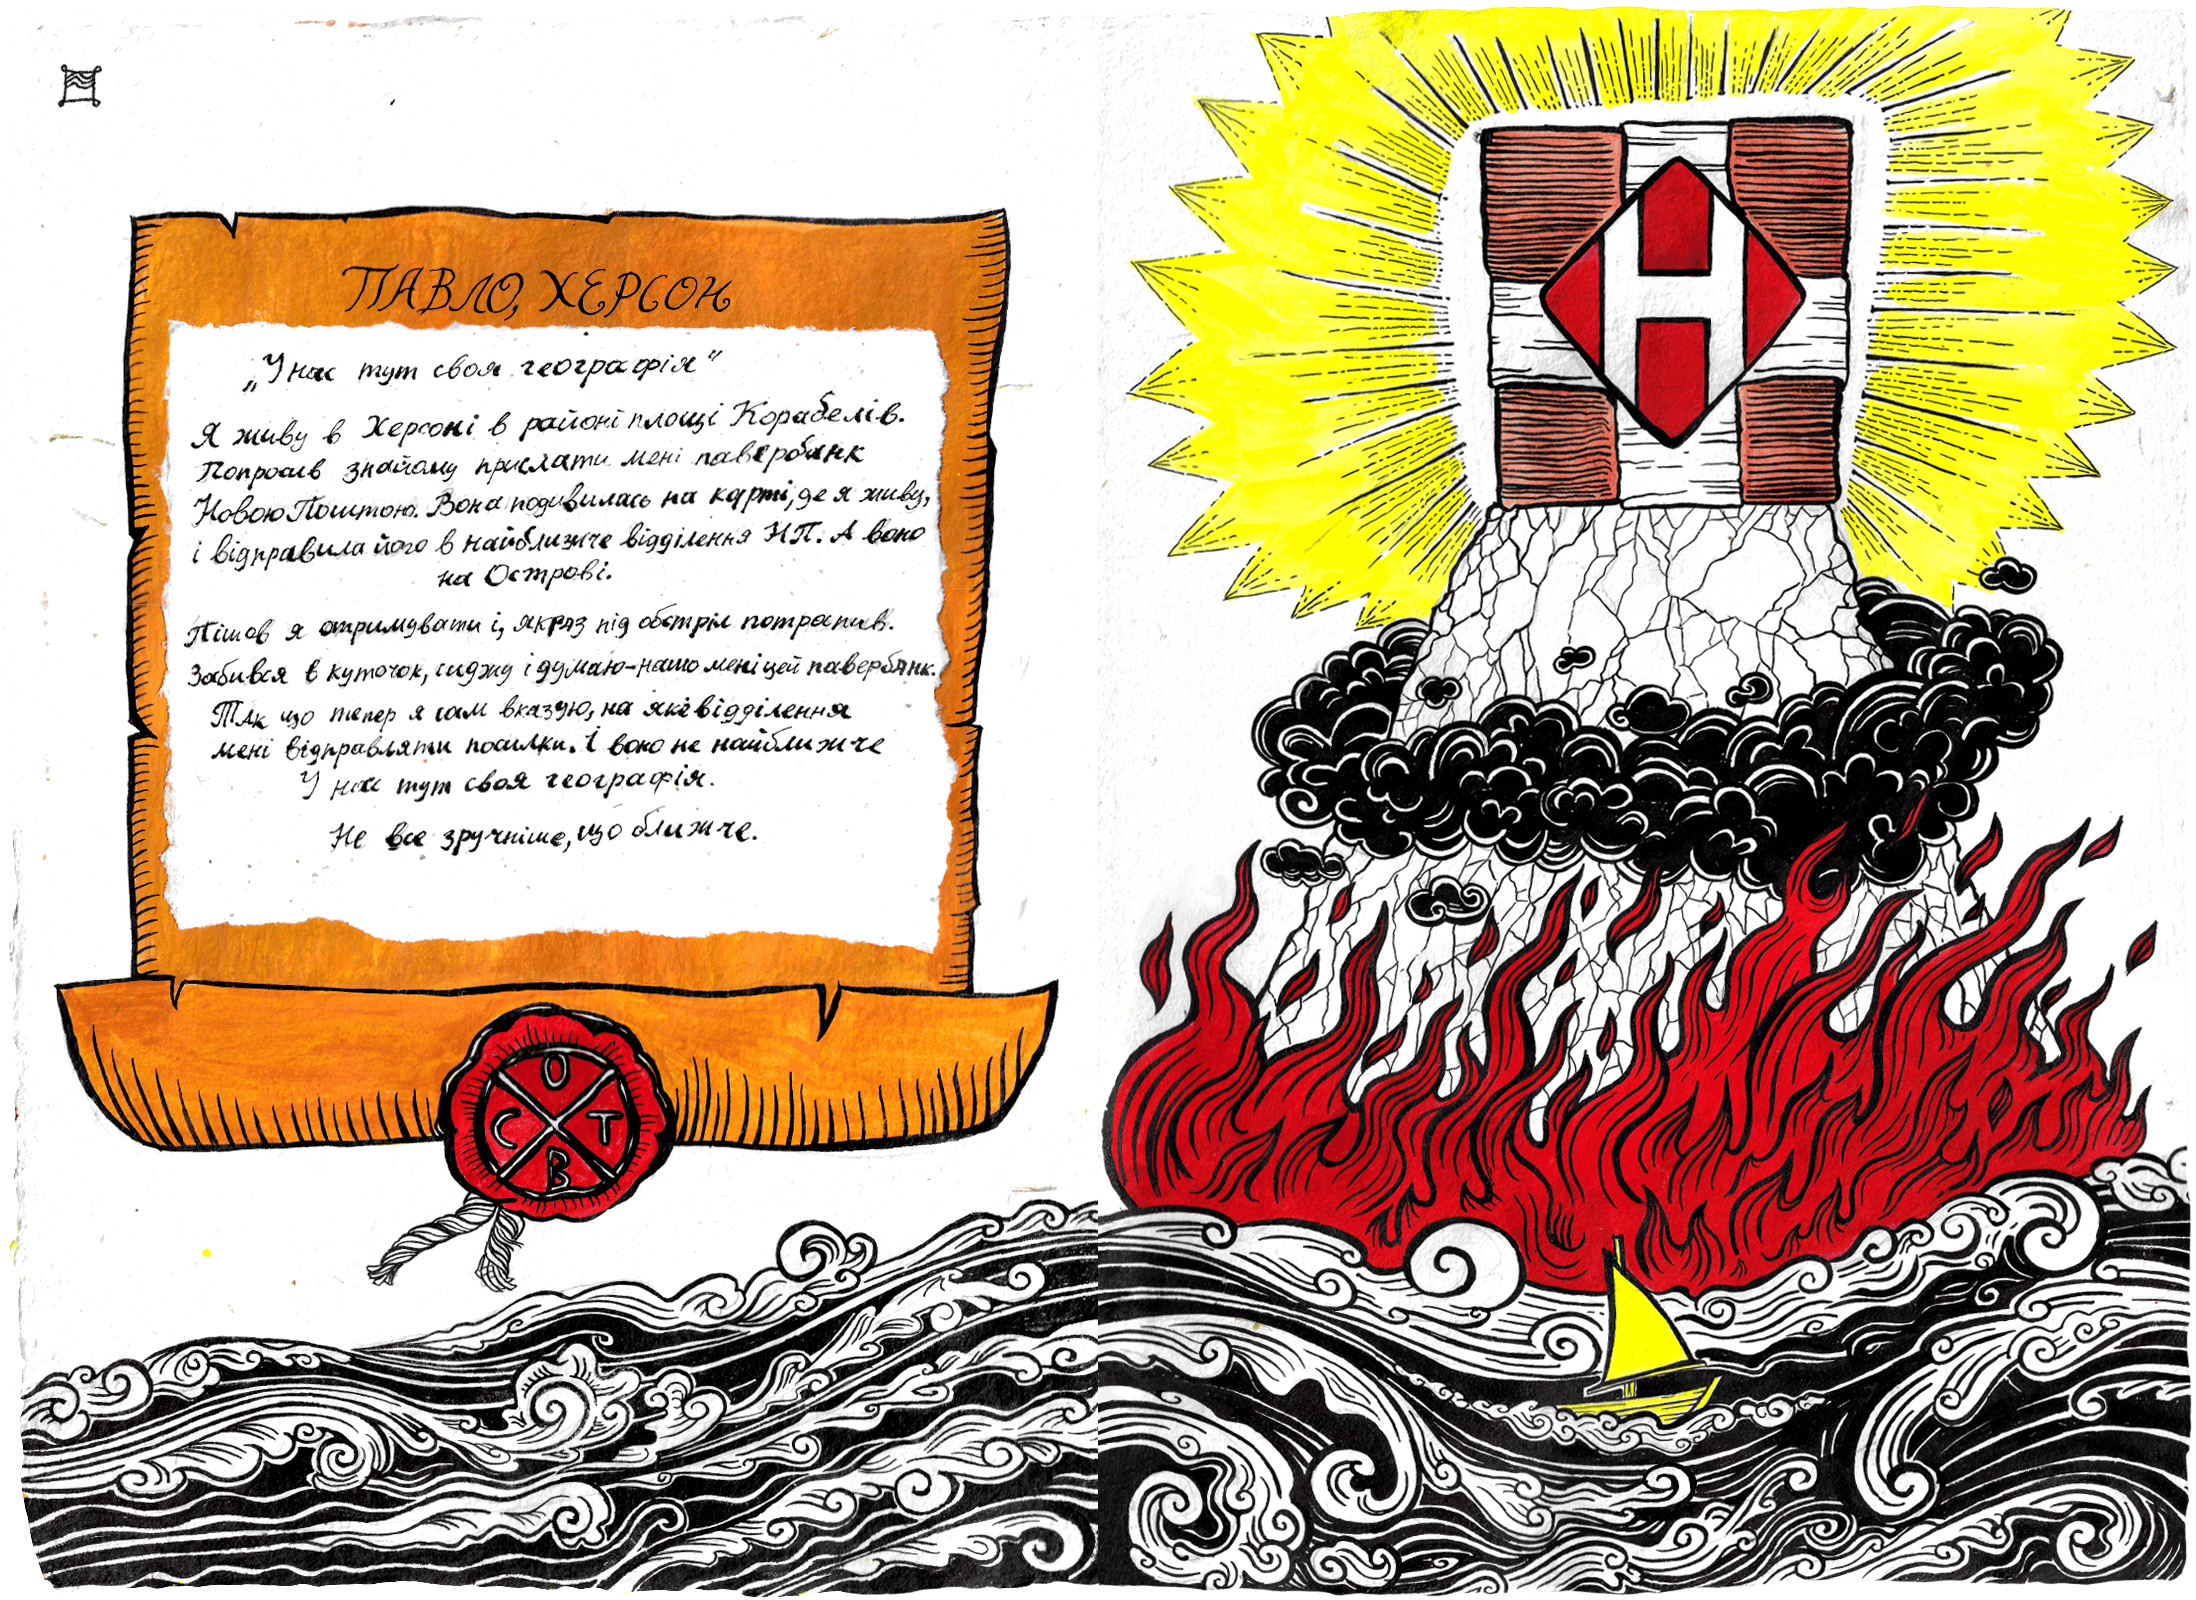 ПАВЛО, ХЕРСОН
„У нас тут своя географія“
Я живу в Херсоні в районі площі Корабелів.
Попросив знайому прислати мені павербанк
Новою Поштою. Вона подивилась на карті, де я живу,
і відправила його в найближче відділення НП. А воно
на Острові.
Пішов я отримувати і, якраз під обстріл потрапив.
Забився в куточок, сиджу і думаю - нашо мені цей павербанк.
Так що тепер я сам вказую, на яке відділення
мені відправляти посилки. І воно не найближче
У нас тут своя географія.
Не все зручніше, що ближче.
О
С Т
В
Н